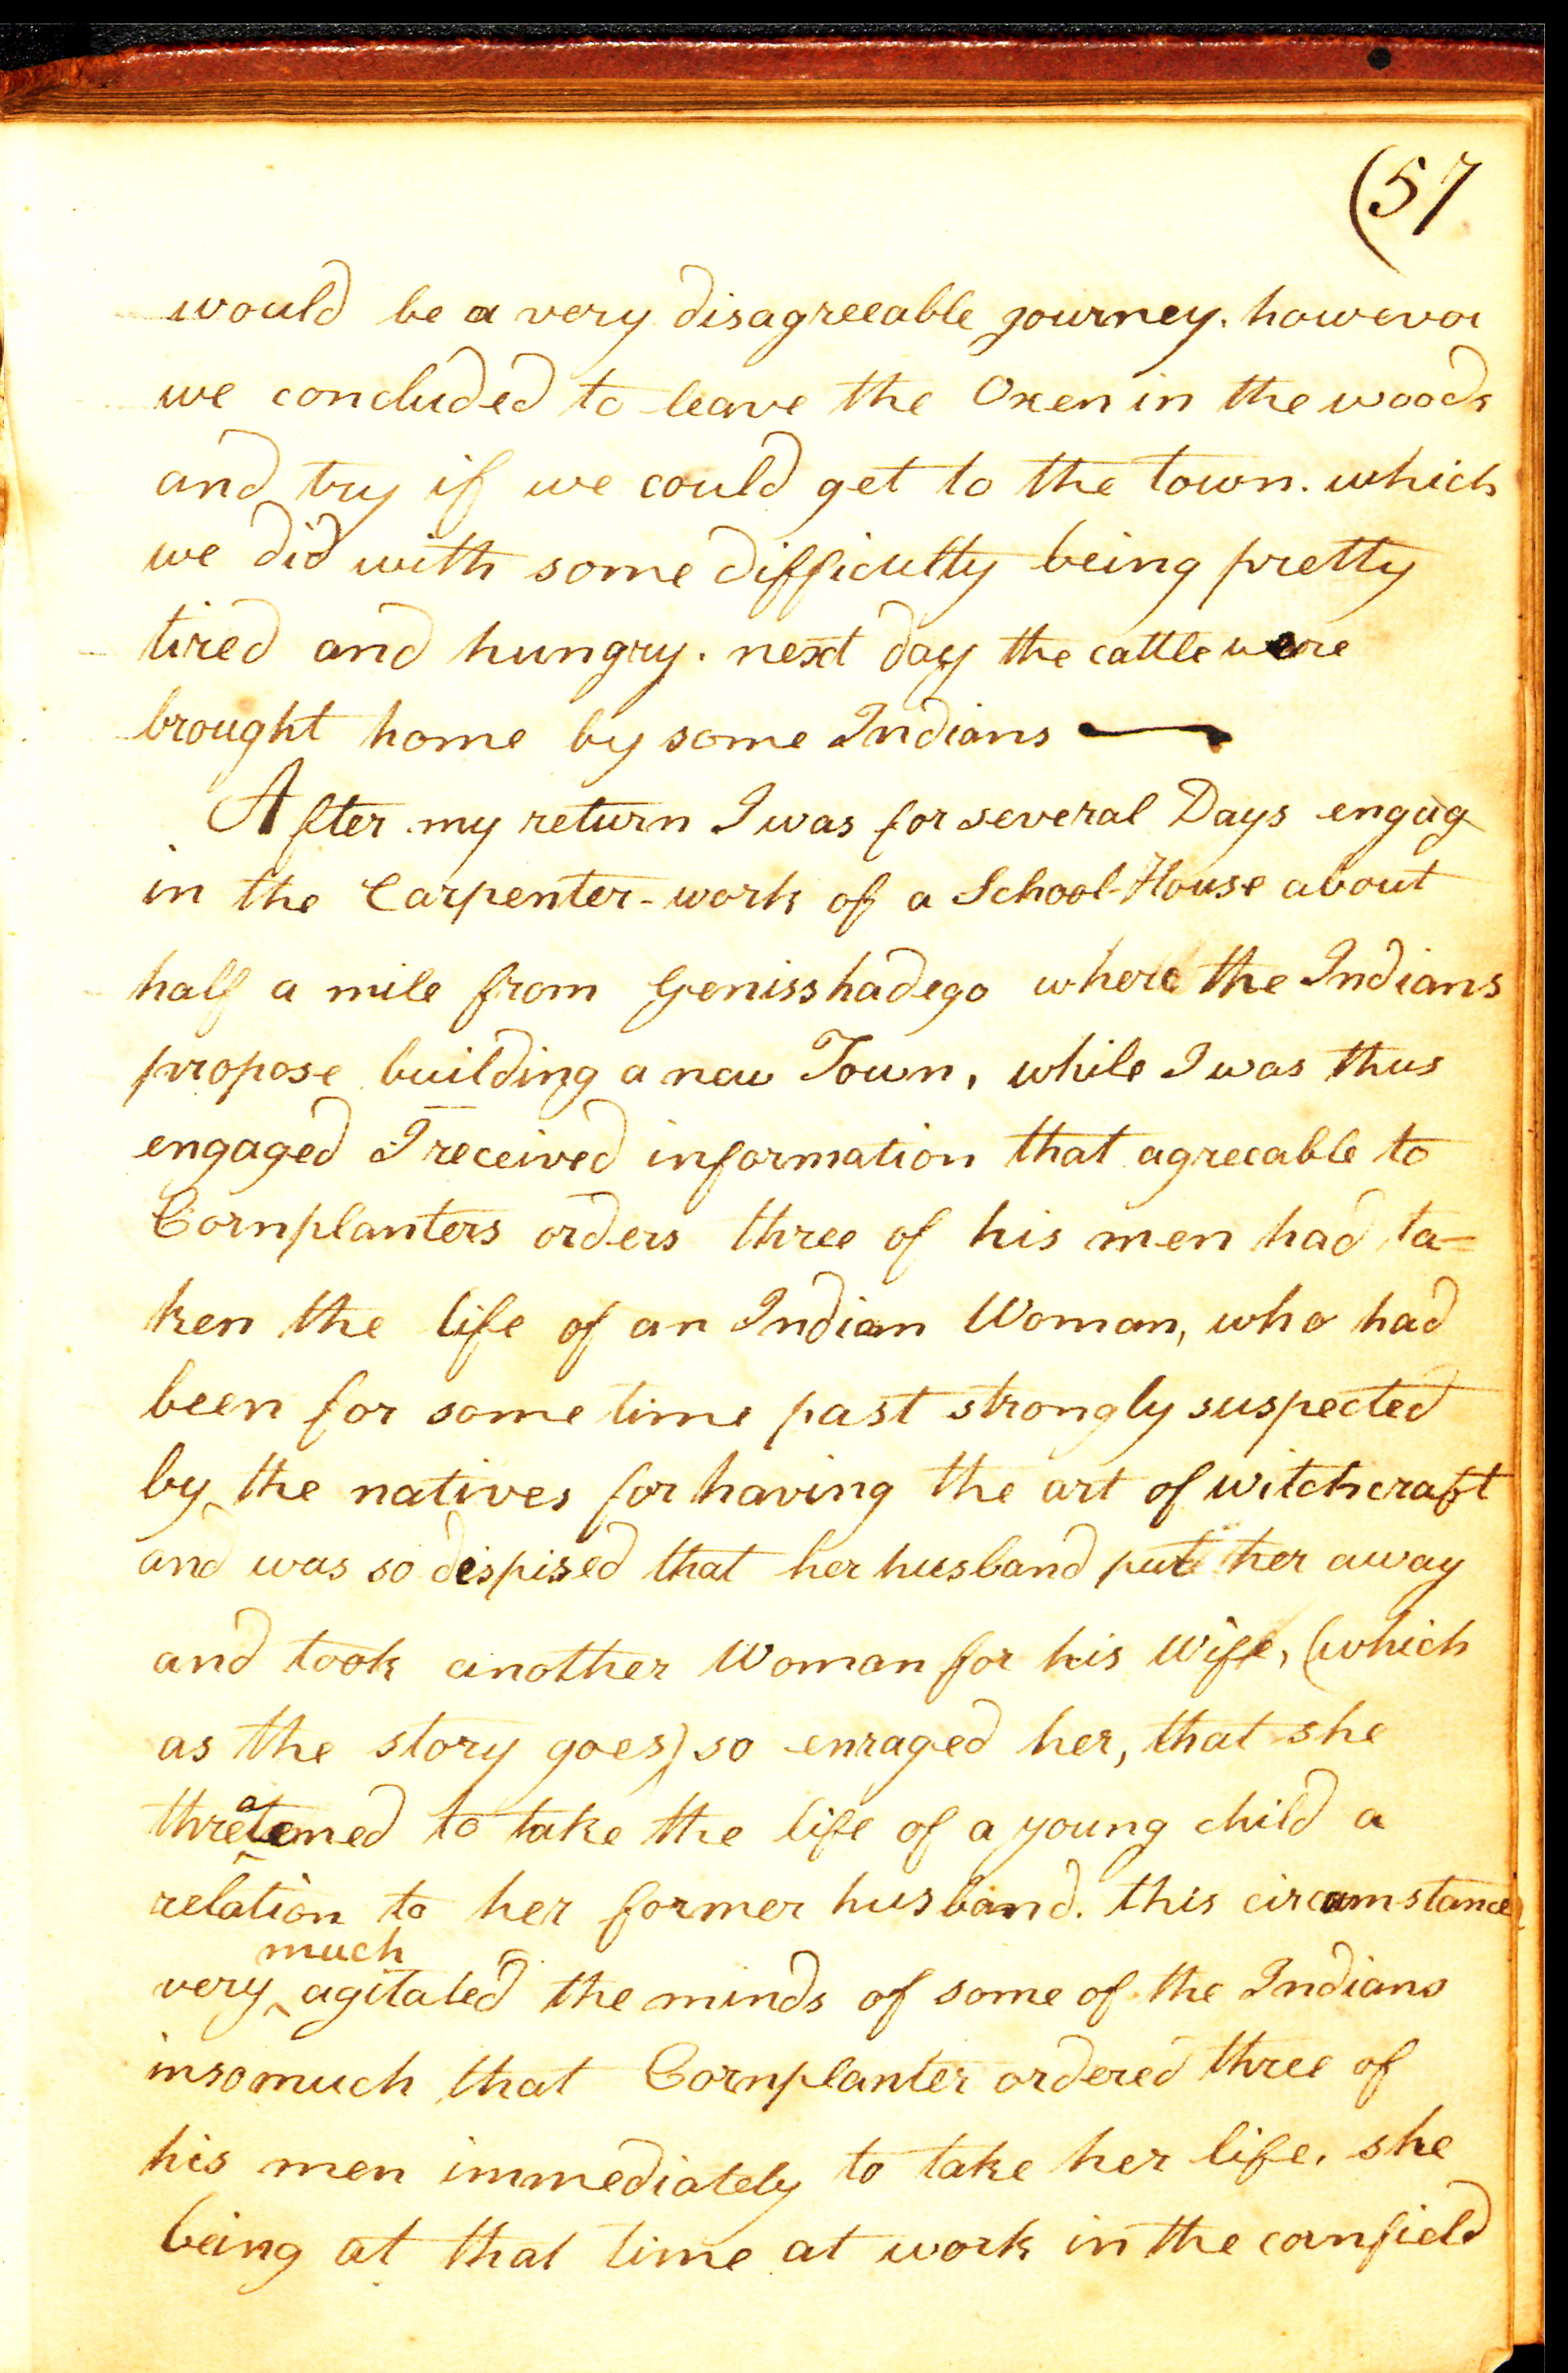 (57
would be a very disagreeable journey. however
we concluded to leave the Oxen in the woods
and try if we could get to the town. which
we did with some difficulty being pretty
tired and hungry. next day the cattle were
brought home by some Indians —
After my return I was for several Days engag
in the Carpenter-work of a School-House about
half a mile from Genisshadego where the Indians
propose building a new Town, while I was thus
engaged I received information that agreeable to
Cornplanters orders three of his men had ta=
ken the life of an Indian Woman, who had
been for some time past strongly suspected
by the natives for having the art of witchcraft
and was so dispised that her husband put her away
and took another Woman for his Wife, (which
as the story goes) so enraged her, that she
threatened to take the life of a young child a
relation to her former husband. this circumstance
very much agitated the minds of some of the Indians
insomuch that Cornplanter ordered three of
his men immediately to take her life. she
being at that time at work in the cornfield